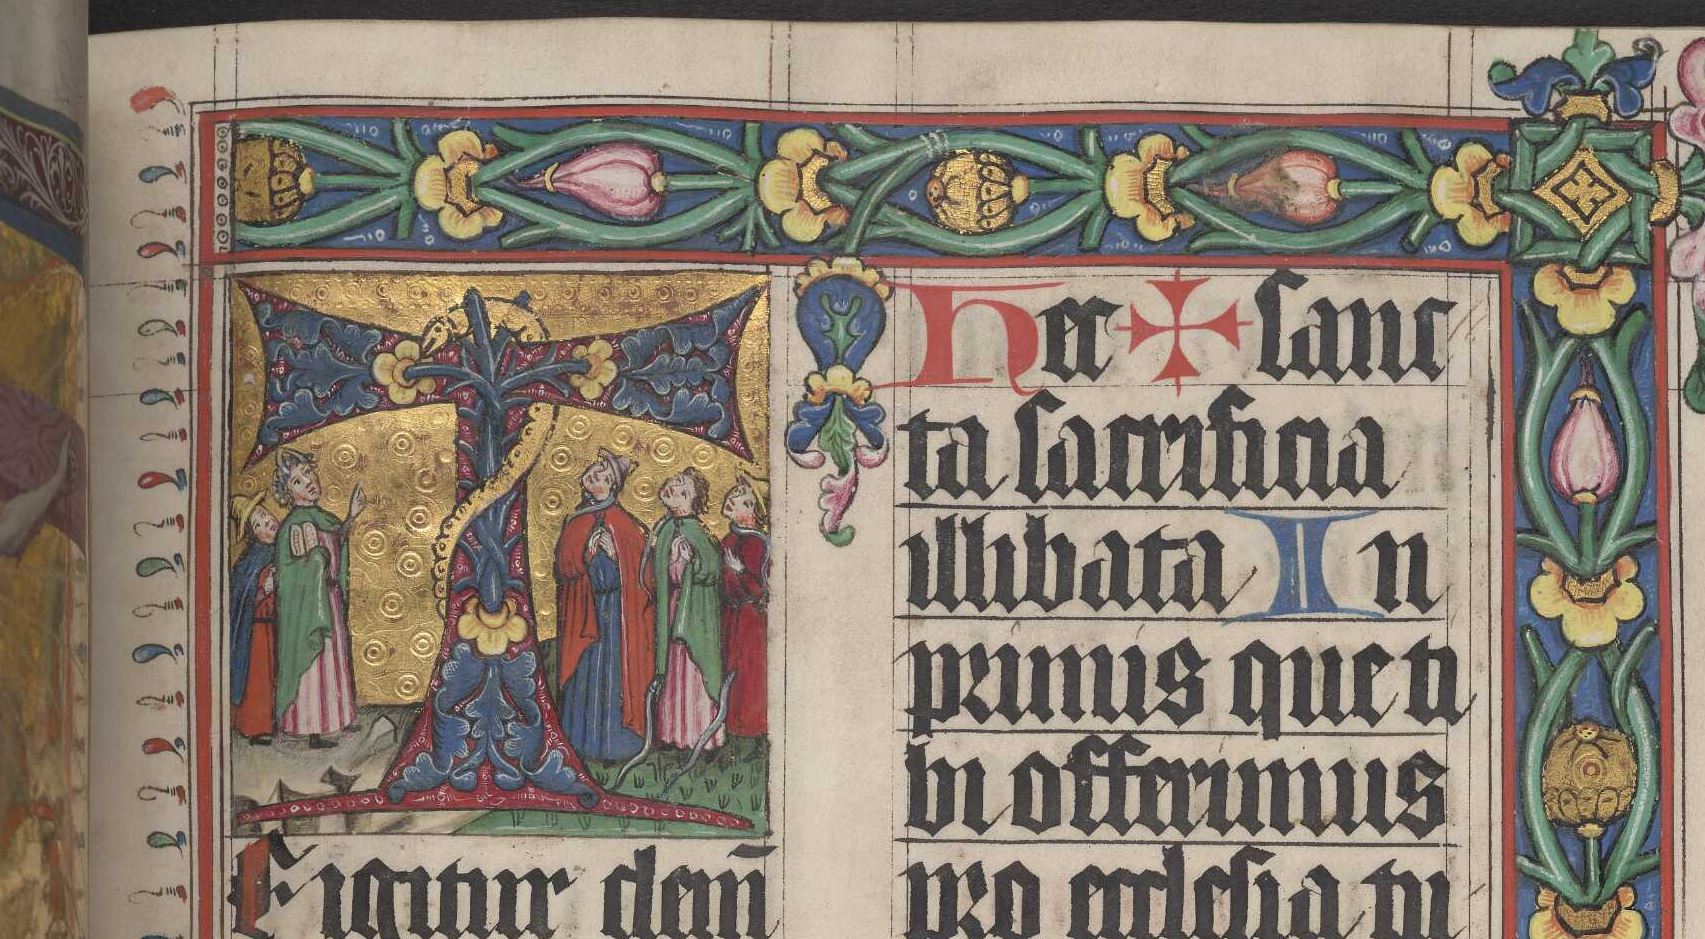 T
E igitur clem̄
Hec ✠ sanc
ta sacrificia
illibata In
primis que ti
bi offerimus
pro ecclesia tu